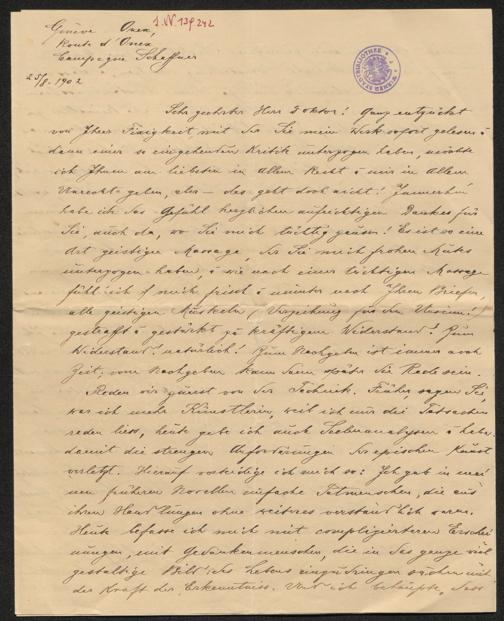 Genève Onex,
Route d'Onex
Campagne Schaffner
25/8. 1902
I.N. 139242
WIENER STADTBIBLIOTHEK
Sehr geehrter Herr Doktor! Ganz entzückt
von Ihrer Fixigkeit, mit der Sie mein Werk sofort gelesen &
dann einer so eingehenden Kritik unterzogen haben, möchte
ich Ihnen am liebsten in Allem Recht & mir in Allem
Unrecht geben, aber – das geht doch nicht! Immerhin
habe ich das Gefühl herzlichen aufrichtigen Dankes für
Sie, auch da, wo Sie mich tüchtig zausen! Es ist so eine
Art geistiger Massage, der Sie mich frohen Mutes
unterzogen haben, & wie nach einer tüchtigen Massage
fühl ich mich frisch & munter nach Ihren Briefen,
alle geistigen Muskeln / Verzeihung für den Unsinn! /
gestrafft & gestärkt zu kräftigem Widerstand! Zum
Widerstand! natürlich! Zum Nachgeben ist immer noch
Zeit, vom Nachgeben kann dann später die Rede sein.
Reden wir zuerst von der Technik. Früher sagen Sie,
war ich mehr Künstlerin, weil ich nur die Tatsachen
reden liess, heute gebe ich auch Seelenanalysen & habe
damit die strengen Anforderungen der epischen Kunst
verletzt. Hierauf verteidige ich mich so: Ich gab in mei
nen früheren Novellen einfache Tatmenschen, die aus
ihren Handlungen ohne weiteres verständlich waren.
Heute befasse ich mich mit complizierteren Erschei
nungen, mit Gedankenmenschen, die in das ganze viel
gestaltige Bild des Lebens einzudringen suchen mit
der Kraft der Erkenntniss. Und ich behaupte, dass